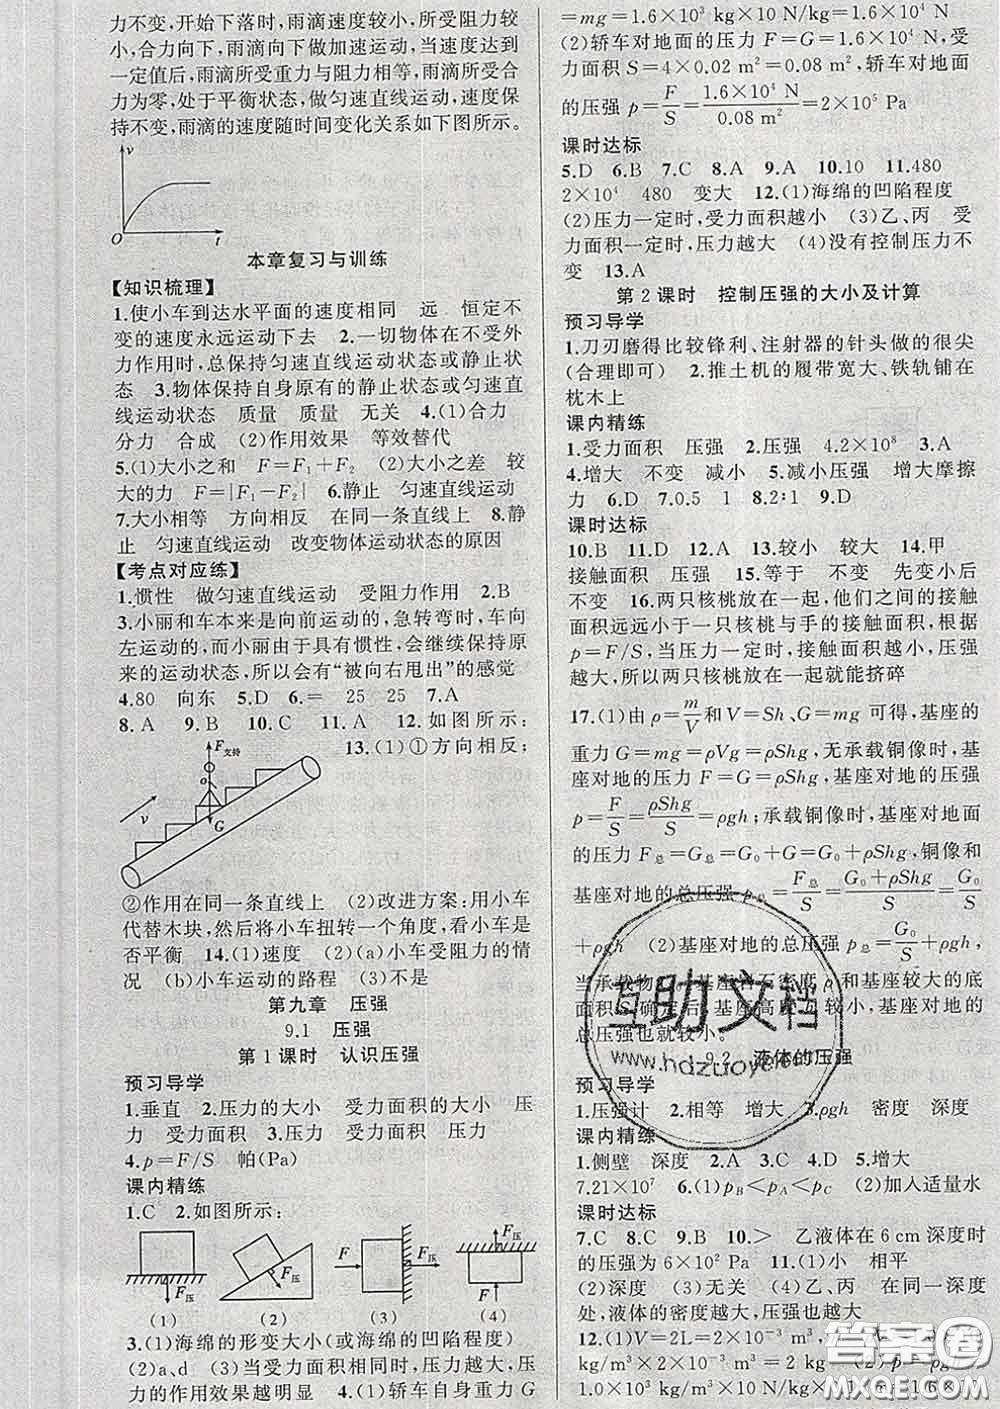 力变大,开始下落时,雨滴速度较小,所受阻力较
小,合力向下,雨滴向下做加速运动,当速度达到
一定值后,雨滴所受重力与阻力相等,雨滴所受合
力为零,处于平衡状态,做匀速直线运动,速度保
持不变,雨滴的速度随时间变化关系如下图所示。
v
O t
本章复习与训练
【知识梳理】
1.使小车到达水平面的速度相同 远 恒定不
变的速度永远运动下去 2.一切物体在不受外
力作用时,总保持匀速直线运动状态或静止状
态 3.物体保持自身原有的静止状态或匀速直
线运动状态 质量 质量 无关 4.(1)合力
分力 合成 (2)作用效果 等效替代
5.(1)大小之和 F=F₁+F₂ (2)大小之差 较
大的力 F=|F₁-F₂| 6.静止 匀速直线运动
7.大小相等 方向相反 在同一条直线上 8.静
止 匀速直线运动 改变物体运动状态的原因
【考点对应练】
1.惯性 做匀速直线运动 受阻力作用 2.B
3.小丽和车本来是向前运动的,急转弯时,车向
左运动的,而小丽由于具有惯性,会继续保持原
来的运动状态,所以会有“被向右甩出”的感觉
4.80 向东 5.D 6.= 25 25 7.A
8.A 9.B 10.C 11.A 12.如图所示:
F支持
13.(1)①方向相反;
v
G
②作用在同一条直线上 (2)改进方案:用小车
代替木块,然后将小车扭转一个角度,看小车是
否平衡 14.(1)速度 (2)(a)小车受阻力的情
况 (b)小车运动的路程 (3)不是
第九章 压强
9.1 压强
第1课时 认识压强
预习导学
1.垂直 2.压力的大小 受力面积的大小 压
力 受力面积 3.受力面积 压强 压力
4.p=F/S 帕(Pa)
课内精练
1.C 2.如图所示:
F压 F压 F F压 F压
(1) (2) (3) (4)
3.(1)海绵的形变大小(或海绵的凹陷程度)
(2)a、d (3)当受力面积相同时,压力越大,压
力的作用效果越明显 4.(1)轿车自身重力G
=mg=1.6×10³ kg×10 N/kg=1.6×10⁴ N
(2)轿车对地面的压力 F=G=1.6×10⁴ N,受
力面积 S=4×0.02 m²=0.08 m²,轿车对地面
的压强 p=F/S=1.6×10⁴ N/0.08 m²=2×10⁵ Pa
课时达标
5.D 6.B 7.C 8.A 9.A 10.10 11.480
2×10⁴ 480 变大 12.(1)海绵的凹陷程度
(2)压力一定时,受力面积越小 (3)乙、丙 受
力面积一定时,压力越大 (4)没有控制压力不
变 13.A
第2课时 控制压强的大小及计算
预习导学
1.刀刃磨得比较锋利、注射器的针头做的很尖
(合理即可) 2.推土机的履带宽大、铁轨铺在
枕木上
课内精练
1.受力面积 压强 2.压强 4.2×10⁸ 3.A
4.增大 不变 减小 5.减小压强 增大摩擦
力 6.D 7.0.5 1 8.2∶1 9.D
课时达标
10.B 11.D 12.A 13.较小 较大 14.甲
接触面积 压强 15.等于 不变 先变小后
不变 16.两只核桃放在一起,他们之间的接触
面积远远小于一只核桃与手的接触面积,根据
p=F/S,当压力一定时,接触面积越小,压强
越大,所以两只核桃放在一起就能挤碎
17.(1)由 ρ=m/V 和 V=Sh、G=mg 可得,基座的
重力 G=mg=ρVg=ρShg,无承载铜像时,基
座对地的压力 F=G=ρShg,基座对地的压强
p=F/S=ρShg/S=ρgh;承载铜像时,基座对地面
的压力 F总=G总=G₀+G=G₀+ρShg,铜像和
基座对地的总压强 p总=F总/S=(G₀+ρShg)/S=G₀/S
+ρgh (2)基座对地的总压强 p总=G₀/S+ρgh,
当承载物 基座 石密度 ρ 和基座较大的底
面积 S 确定后,基座高度 h 较小,对地的
总压强也就较小。
9.2 液体的压强
预习导学
1.压强计 2.相等 增大 3.ρgh 密度 深度
课内精练
1.侧壁 深度 2.A 3.C 4.D 5.增大
7.21×10⁷ 6.(1)pB<pA<pC (2)加入适量水
课时达标
7.C 8.C 9.B 10.> 乙液体在 6 cm 深度时
的压强为 6×10² Pa 11.(1)小 相平
(2)深度 (3)无关 (4)乙、丙 在同一深度
处,液体的密度越大,压强也越大
12.(1)V=2L=2×10⁻³ m³,
kg/m³×2×10⁻³ m³=2 kg (2)p=ρgh=
1.0×10³ kg/m³×10 N/kg×
互助文档
www.hdzuoye.com
答案圈
MXQE.COM